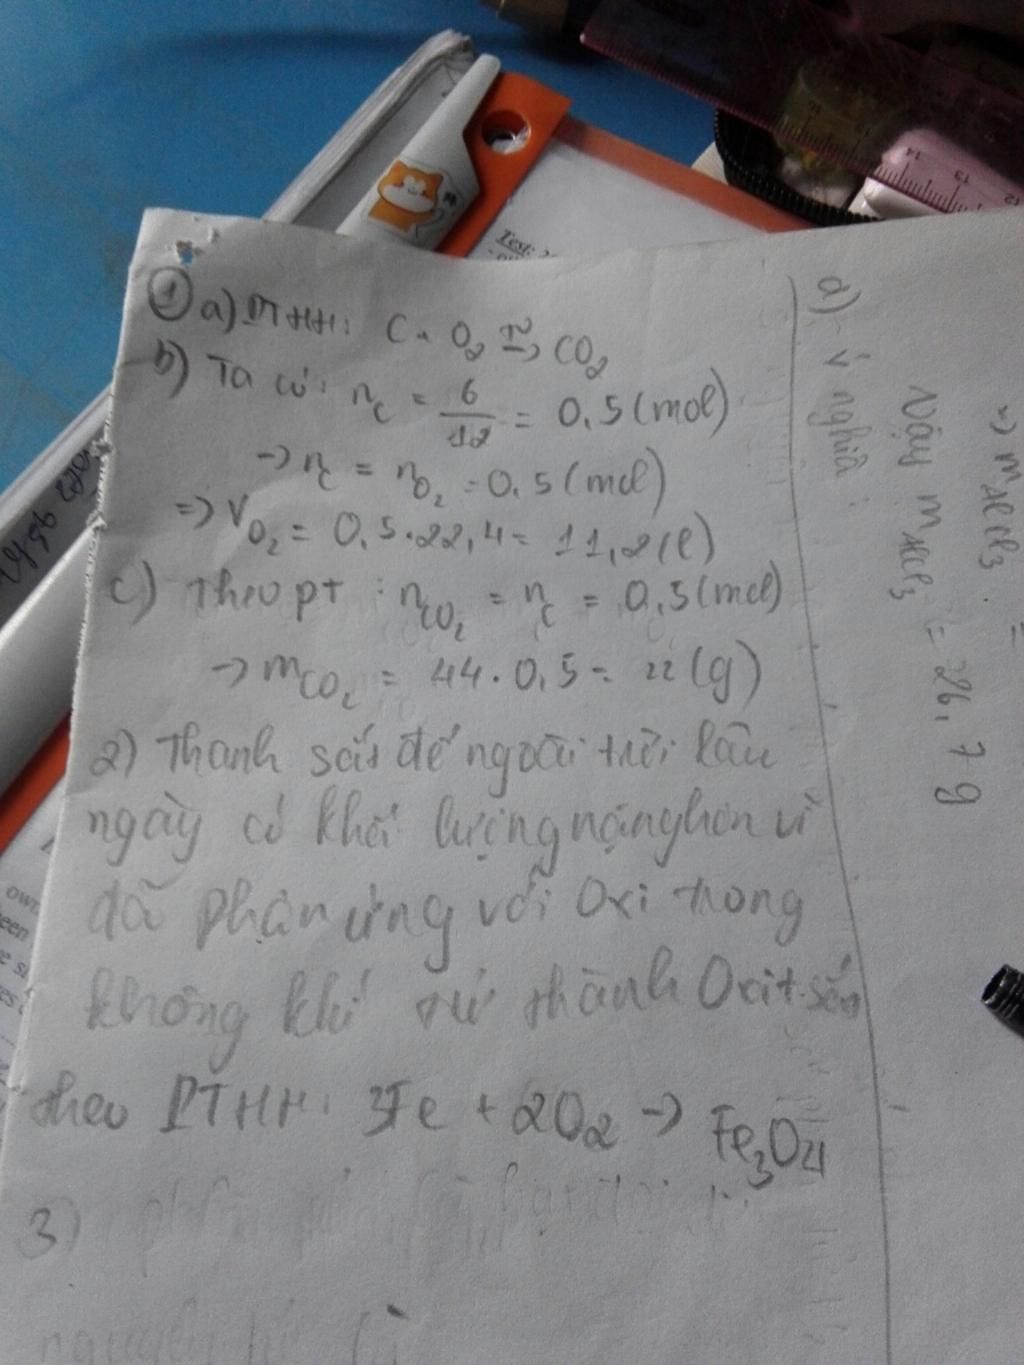 ① a) PTHH: C + O₂ t°→ CO₂
b) Ta có: n_C = 6/12 = 0,5 (mol)
→ n_C = n_O₂ = 0,5 (mol)
=> V_O₂ = 0,5.22,4 = 11,2 (l)
c) Theo pt: n_CO₂ = n_C = 0,5 (mol)
→ m_CO₂ = 44.0,5 = 22 (g)
2) Thanh sắt để ngoài trời lâu
ngày có khối lượng nặng hơn vì
đã phản ứng với Oxi trong
không khí thành Oxit sắt
theo PTHH: 3Fe + 2O₂ → Fe₃O₄
3)
d) Ý nghĩa:
Vậy m_AlCl₃ = 26,7 g
=> m_AlCl₃ =
Test:
14
13
12